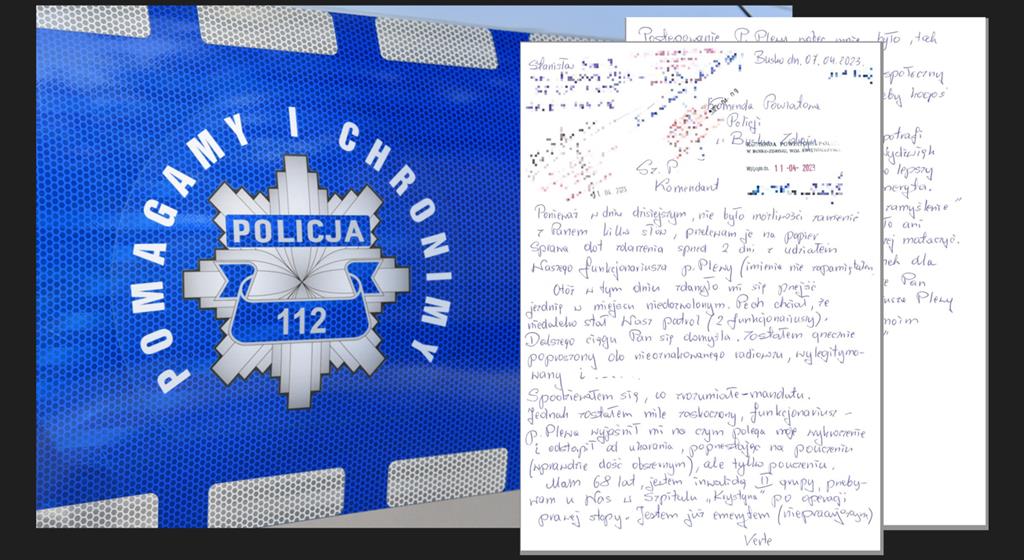 POMAGAMY I CHRONIMY
POLICJA
112
Postępowanie P. Plewy było, tak
społeczny
potrafi
lepszy
zamyślenie"
ani
mataczyć.
dla
Pan
Plewy
moim
Stanisław
Busko dn. 07.04.2023.
Komenda Powiatowa
Policji
Busko Zdrój
11-04-2023
Sz. P.
Komendant
Ponieważ w dniu dzisiejszym, nie było możliwości zamienić
z Panem kilku słów, przelewam je na papier
Sprawa dot zdarzenia sprzed 2 dni z udziałem
Waszego funkcjonariusza p. Plewy (imienia nie zapamiętałem
Otóż w tym dniu zdarzyło mi się przejść
jezdnię w miejscu niedozwolonym. Pech chciał, że
niedaleko stał Wasz patrol (2 funkcjonariuszy).
Dalszego ciągu Pan się domyśla. Zostałem grzecznie
poproszony do nieoznakowanego radiowozu, wylegitymo-
wany i .......
Spodziewałem się, co zrozumiałe - mandatu.
Jednak zostałem mile zaskoczony, funkcjonariusz -
p. Plewa wyjaśnił mi na czym polega moje wykroczenie
i odstąpił od ukarania, poprzestając na pouczeniu
(wprawdzie dość obszernym), ale tylko pouczeniu.
Mam 68 lat, jestem inwalidą II grupy, przeby-
wam u Was w Szpitalu „Krystyna" po operacji
prawej stopy. Jestem już emerytem (niepracującym)
Verte